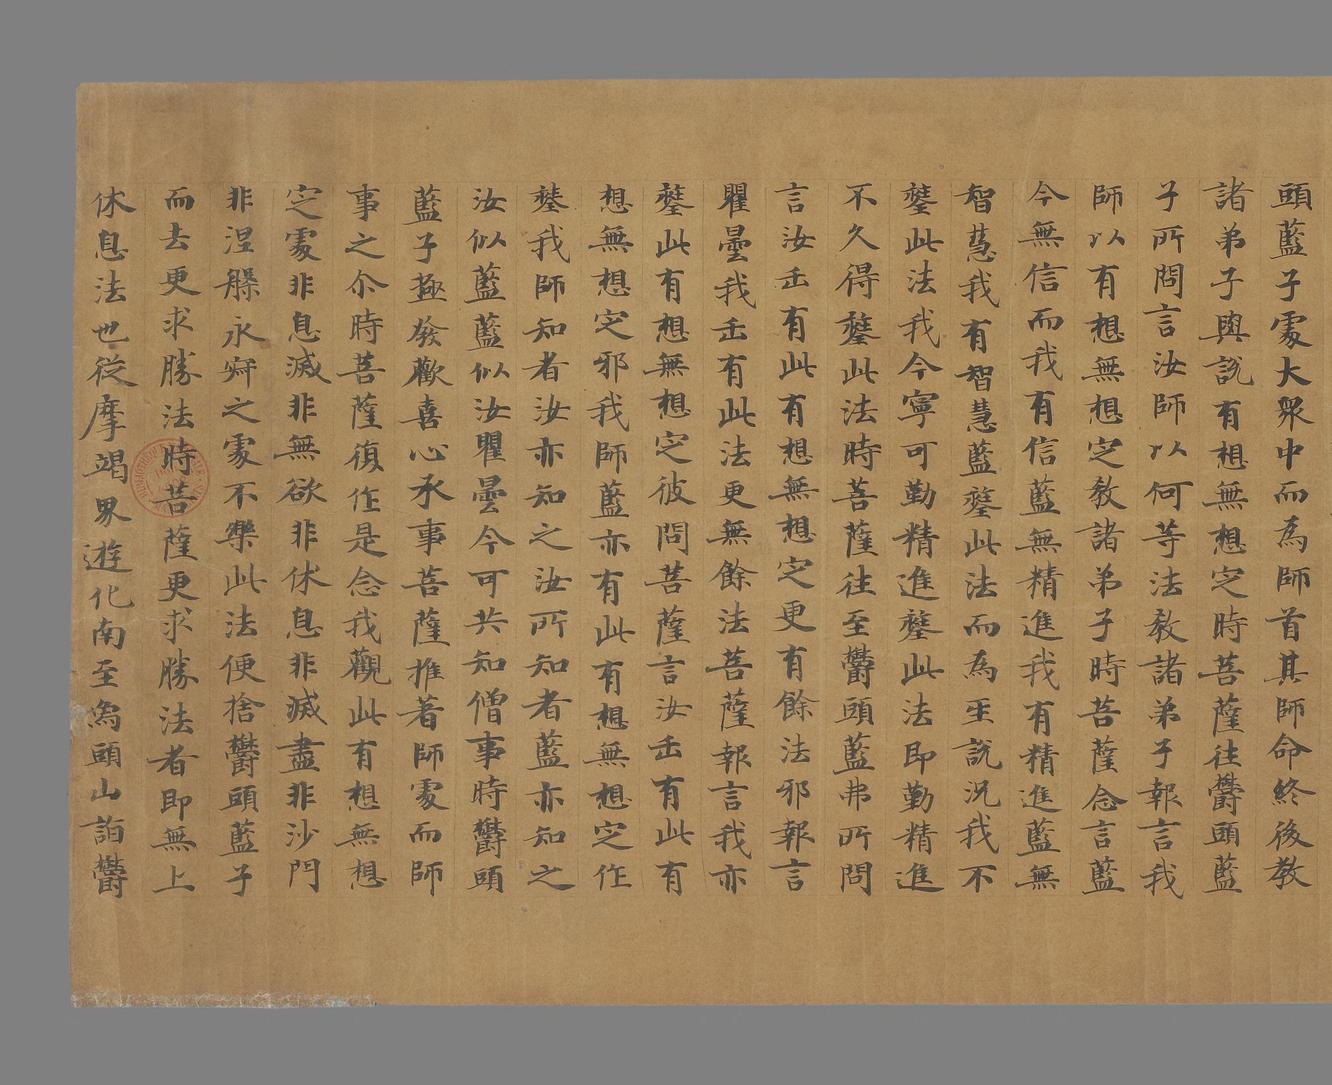 頭藍子處大眾中而為師首其師命終後教
諸弟子與說有想無想定時菩薩往欝頭藍
子所問言汝師以何等法教諸弟子報言我
師以有想無想定教諸弟子時菩薩念言藍
今無信而我有信藍無精進我有精進藍無
智慧我有智慧藍𨭻此法而為𤯔說況我不
𨭻此法我今寧可勤精進𨭻此法即勤精進
不久得𨭻此法時菩薩往至欝頭藍弗所問
言汝𠙺有此有想無想定更有餘法邪報言
瞿曇我𠙺有此法更無餘法菩薩報言我亦
𨭻此有想無想定彼問菩薩言汝𠙺有此有
想無想定邪我師藍亦有此有想無想定作
𨭻我師知者汝亦知之汝所知者藍亦知之
汝似藍藍似汝瞿曇今可共知僧事時欝頭
藍子極發歡喜心承事菩薩推著師處而師
事之尒時菩薩復作是念我觀此有想無想
定處非息滅非無欲非休息非滅盡非沙門
非涅槃永寂之處不樂此法便捨欝頭藍子
而去更求勝法時菩薩更求勝法者即無上
休息法也從摩竭界遊化南至象頭山詣欝